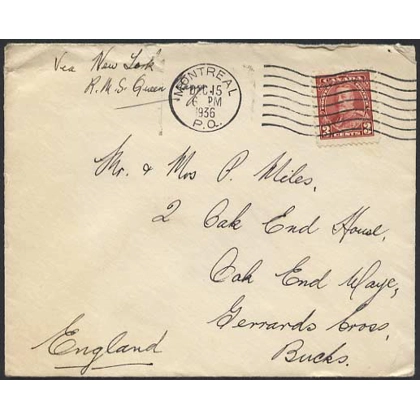 Via New York
R.M.S. Queen
MONTREAL
DEC 15
6 PM
1936
P.Q.
CANADA
3 CENTS 3
Mr. & Mrs P. Miles,
2 Oak End House,
Oak End Waye,
Gerrards Cross,
Bucks.
England